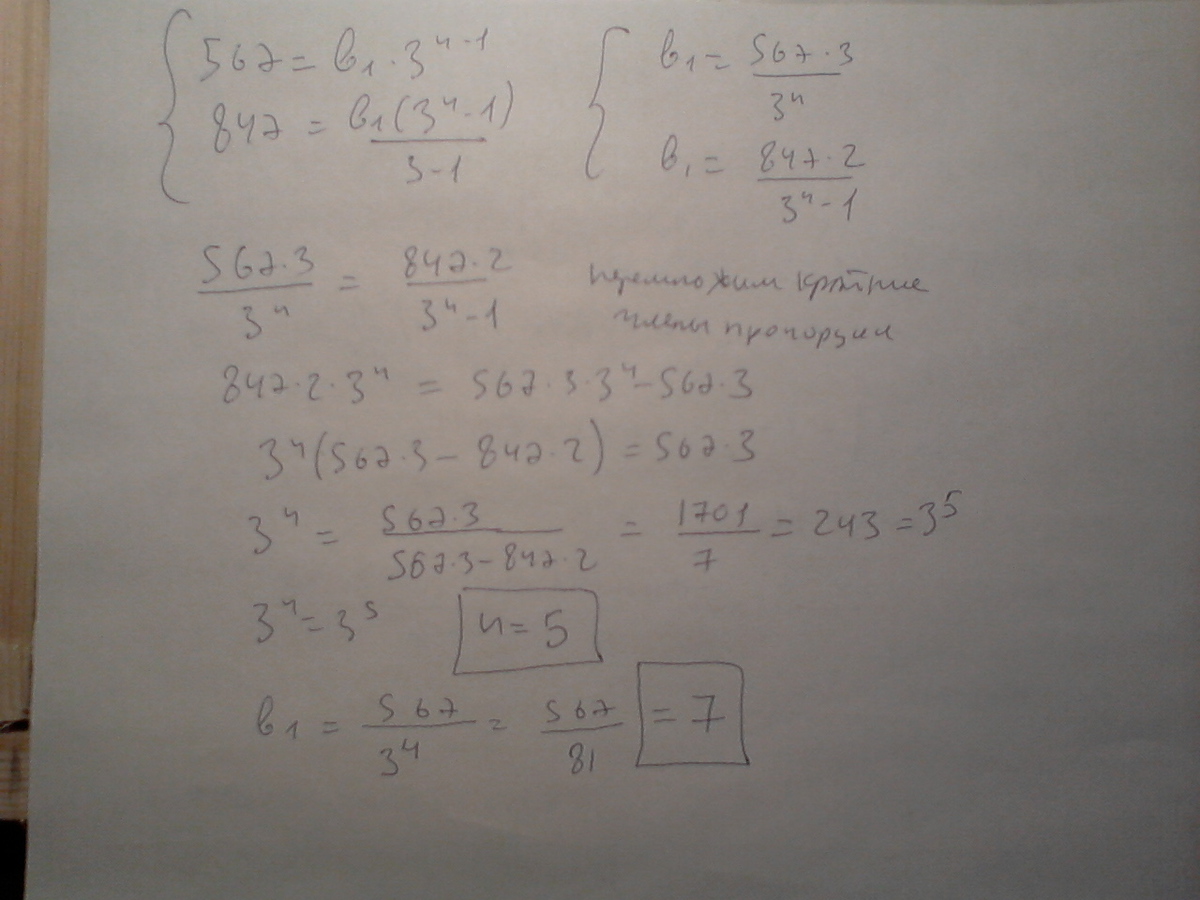 567 = b₁ · 3ⁿ⁻¹
847 = b₁(3ⁿ - 1) / (3-1)
b₁ = 567·3 / 3ⁿ
b₁ = 847·2 / (3ⁿ - 1)
567·3 / 3ⁿ = 847·2 / (3ⁿ - 1)
перемножим крайние
члены пропорции
847·2·3ⁿ = 567·3·3ⁿ - 567·3
3ⁿ(567·3 - 847·2) = 567·3
3ⁿ = 567·3 / (567·3 - 847·2) = 1701 / 7 = 243 = 3⁵
3ⁿ = 3⁵ n = 5
b₁ = 567 / 3⁴ = 567 / 81 = 7